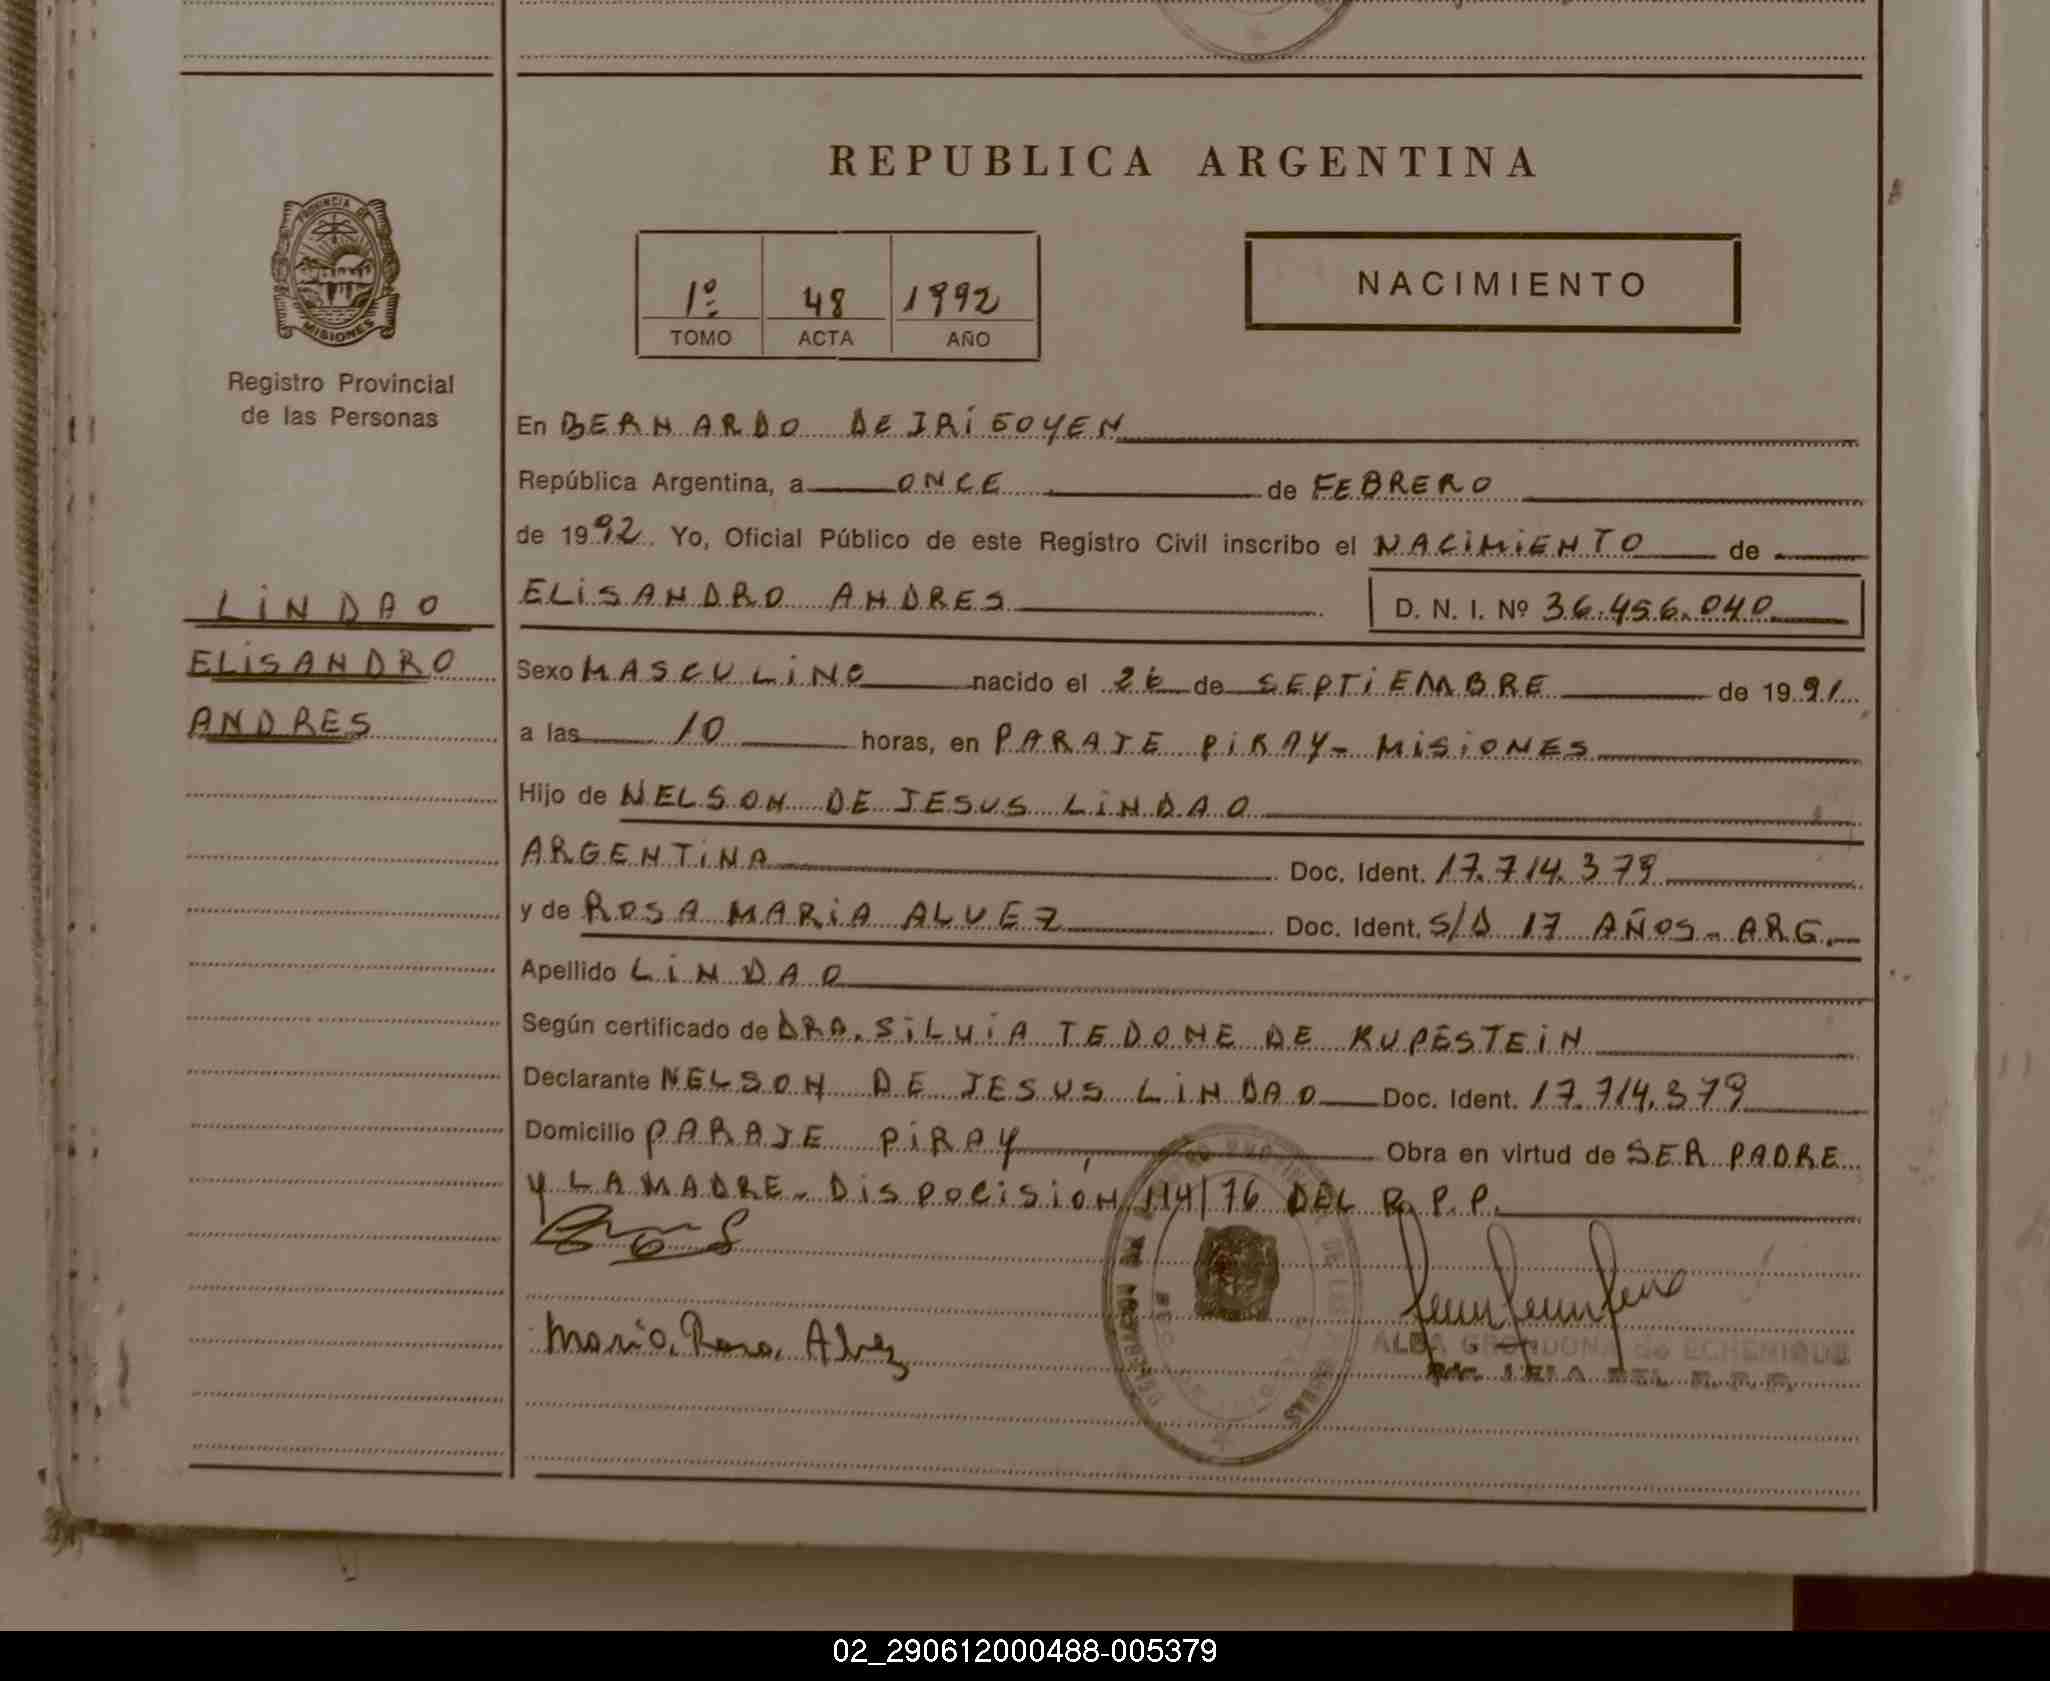 REPUBLICA ARGENTINA
PROVINCIA DE
MISIONES
Registro Provincial
de las Personas
1º 48 1992
TOMO ACTA AÑO
NACIMIENTO
En BERNARDO DE IRIGOYEN
República Argentina, a ONCE de FEBRERO
de 1992. Yo, Oficial Público de este Registro Civil inscribo el NACIMIENTO de
LINDAO
ELISANDRO
ANDRES
ELISANDRO ANDRES D. N. I. Nº 36.456.040
Sexo MASCULINO nacido el 26 de SEPTIEMBRE de 1991
a las 10 horas, en PARAJE PIRAY- MISIONES
Hijo de NELSON DE JESUS LINDAO
ARGENTINA Doc. Ident. 17.714.379
y de ROSA MARIA ALVEZ Doc. Ident. S/D 17 AÑOS- ARG.
Apellido LINDAO
Según certificado de DRA. SILVIA TEDONE DE RUPESTEIN
Declarante NELSON DE JESUS LINDAO Doc. Ident. 17.714.379
Domicilio PARAJE PIRAY, Obra en virtud de SER PADRE
Y LA MADRE- DISPOCISION 114/76 DEL R.P.P.
Maria, Rosa, Alvez
ALBA GRONDONA de ECHENIQUE
DEL R.P.P.
02_290612000488-005379